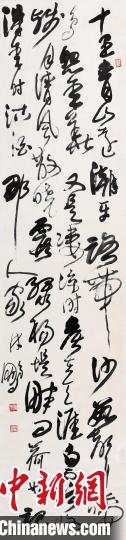 十里青山远潮平路带沙数声啼
鸟怨年华又是凄凉时候在天涯白露收
残月清风散晓霞绿杨堤畔问荷花记
得年时沽酒那人家沈鹏
中新网
Chinanews.com